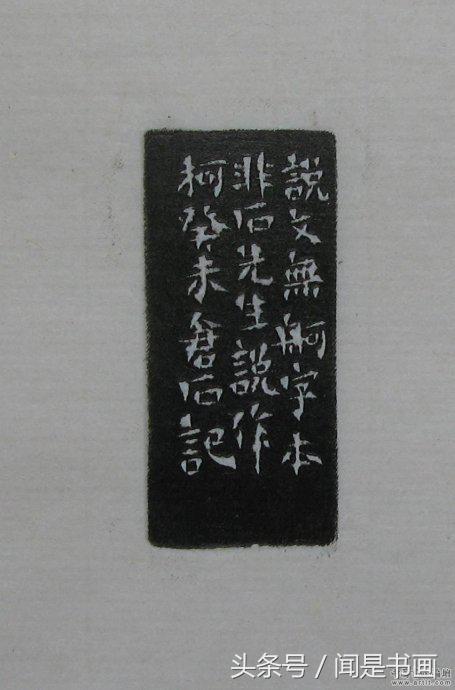 說文無舸字本
非石先生說作
柯癸未君石記
头条号／闻是书画